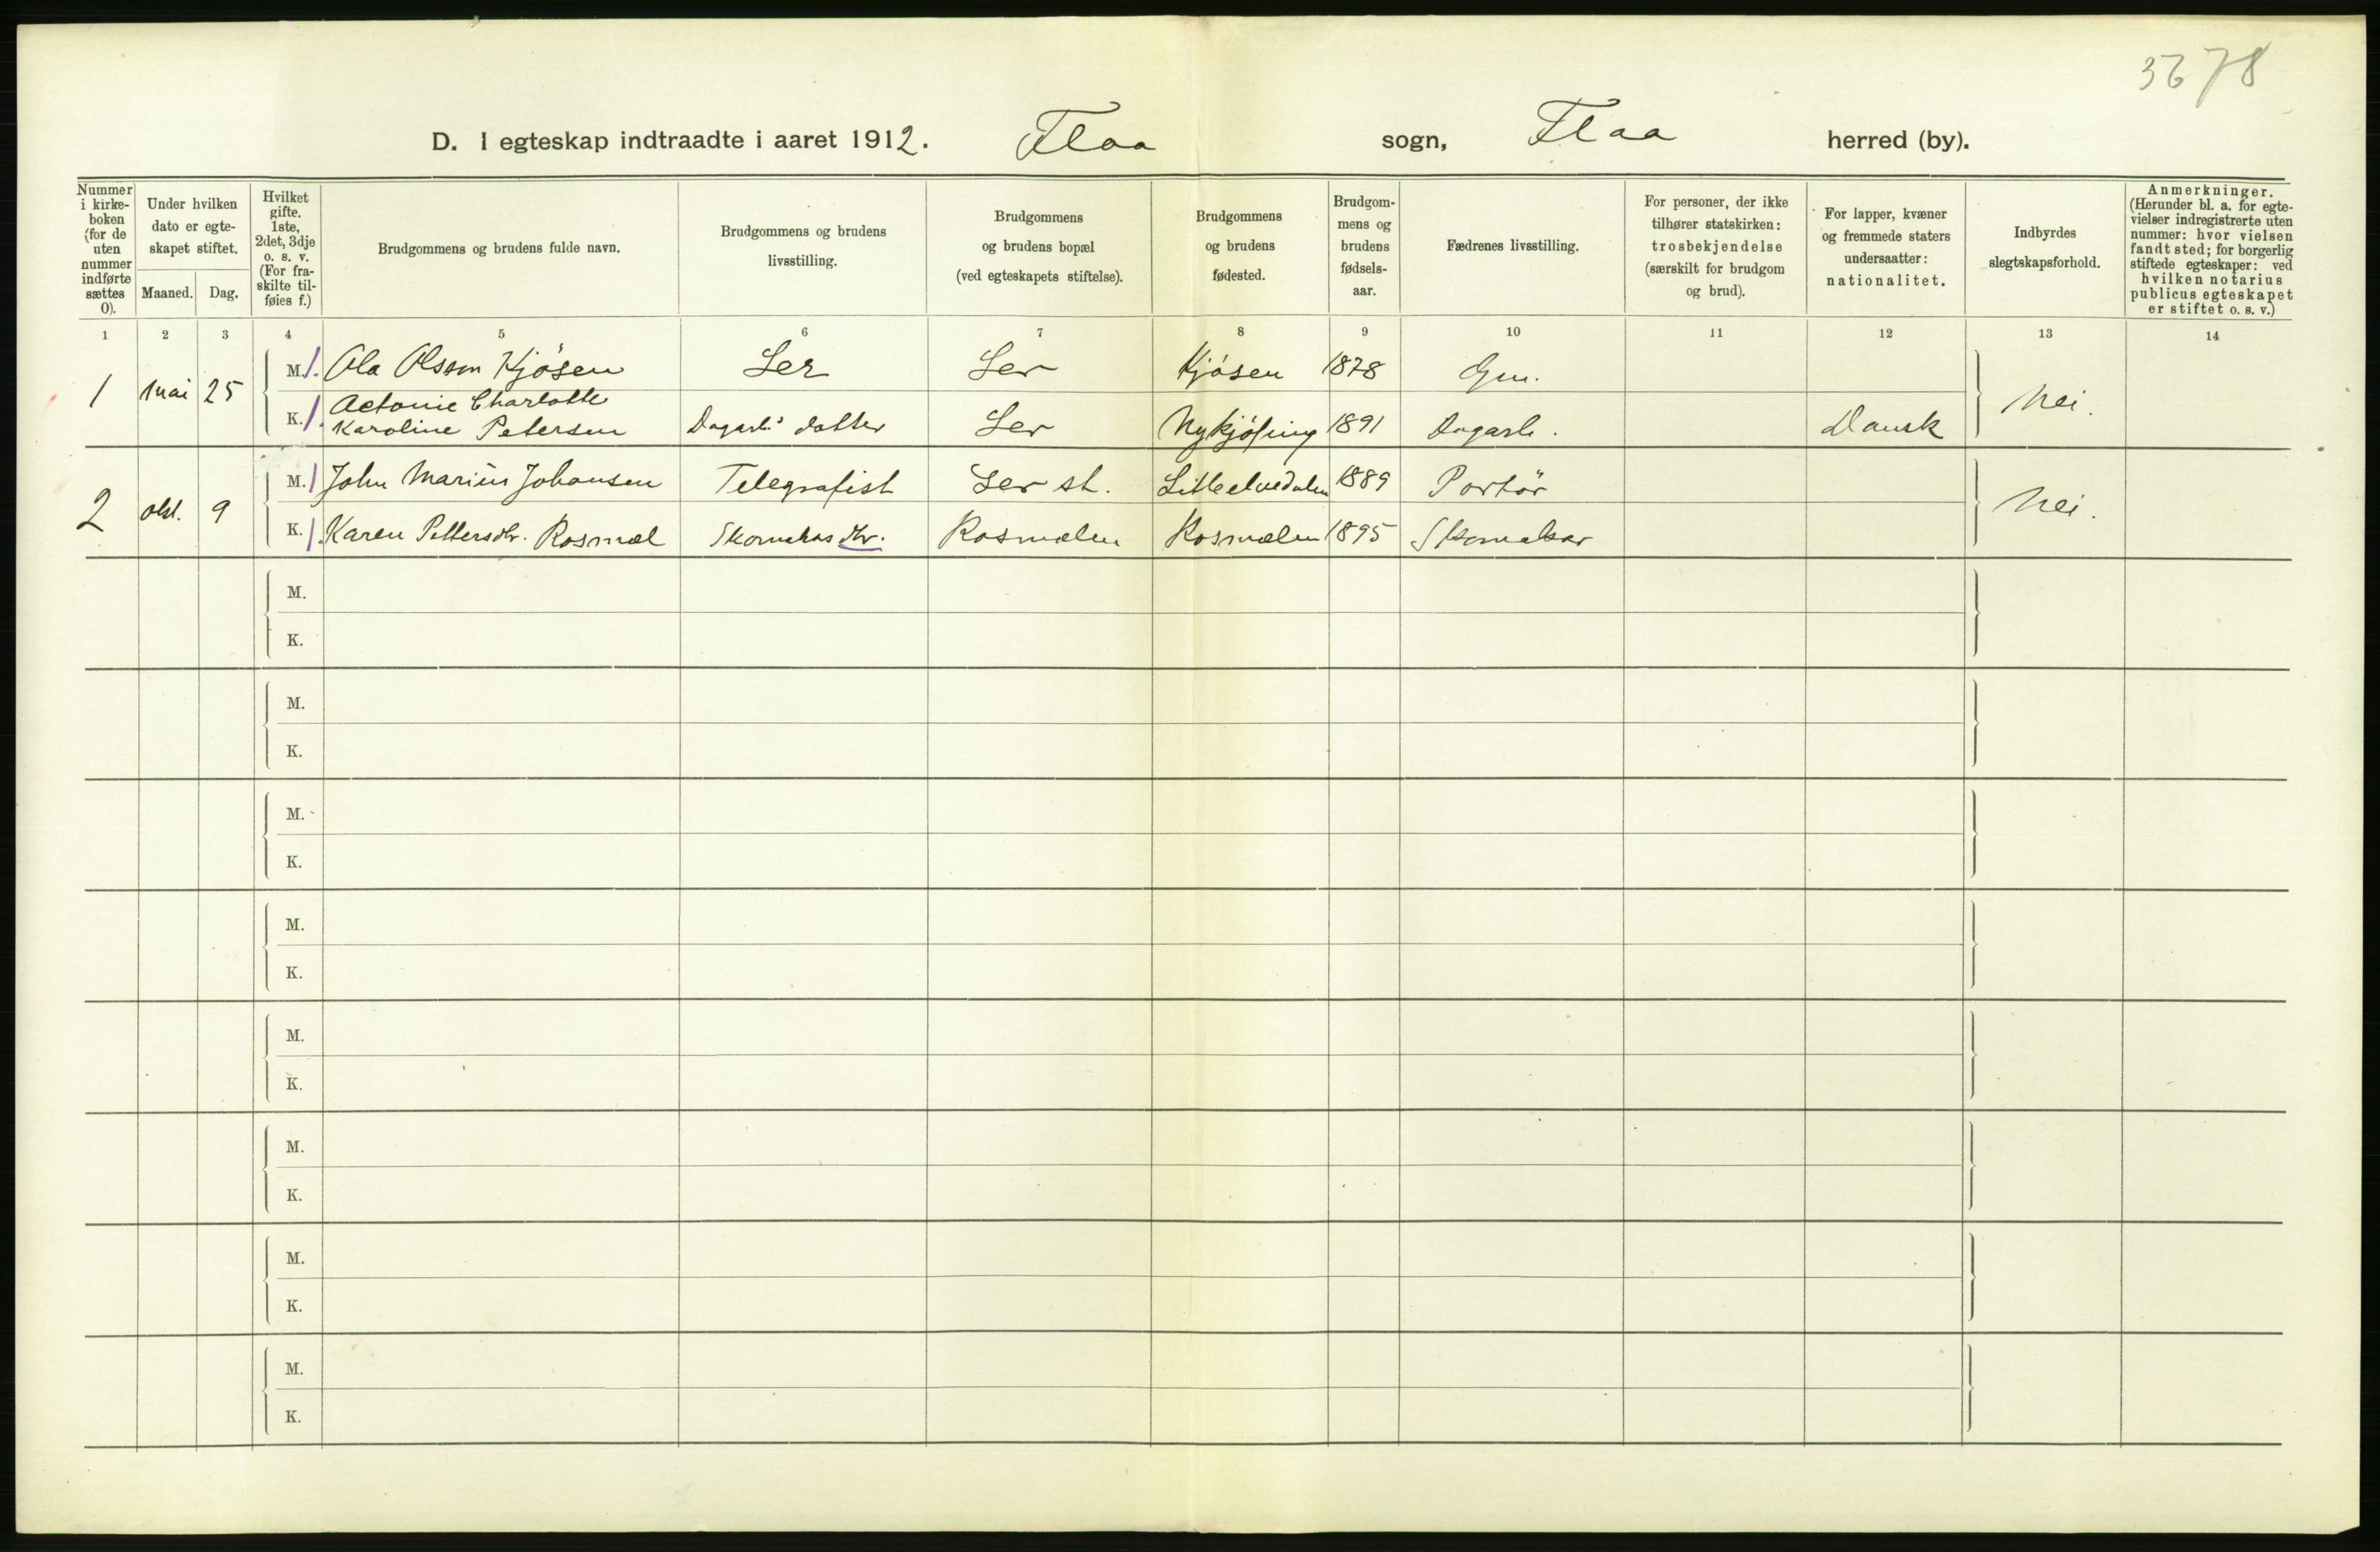 3678
D. I egteskap indtraadte i aaret 1912. Flaa sogn, Flaa herred (by).
Nummer
i kirke-
boken
(for de
uten
nummer
indførte
sættes
0).
Under hvilken
dato er egte-
skapet stiftet.
Maaned.
Dag.
Hvilket
gifte.
1ste,
2det, 3dje
o. s. v.
(For fra-
skilte til-
føies f.)
Brudgommens og brudens fulde navn.
Brudgommens og brudens
livsstilling.
Brudgommens
og brudens bopæl
(ved egteskapets stiftelse).
Brudgommens
og brudens
fødested.
Brudgom-
mens og
brudens
fødsels-
aar.
Fædrenes livsstilling.
For personer, der ikke
tilhører statskirken:
trosbekjendelse
(særskilt for brudgom
og brud).
For lapper, kvæner
og fremmede staters
undersaatter:
nationalitet.
Indbyrdes
slegtskapsforhold.
Anmerkninger.
(Herunder bl. a. for egte-
vielser indregistrerte uten
nummer: hvor vielsen
fandt sted; for borgerlig
stiftede egteskaper: ved
hvilken notarius
publicus egteskapet
er stiftet o. s. v.)
1 2 3 4 5 6 7 8 9 10 11 12 13 14
1 mai 25
M. 1. Ola Olsson Kjösen Ler Ler Kjösen 1878 Gm.
K. 1. Antonie Charlotte
Karoline Petersen Dagarb. datter Ler Nykjöping 1891 Dagarb. Dansk
Nei.
2 okt. 9
M. 1 John Marius Johansen Telegrafist Ler st. Lilleelvedalen 1889 Portör
K. 1. Karen Pettersdtr. Rosmæl Skomakerdtr. Rosmælen Rosmælen 1895 Skomaker
Nei.
M.
K.
M.
K.
M.
K.
M.
K.
M.
K.
M.
K.
M.
K.
M.
K.